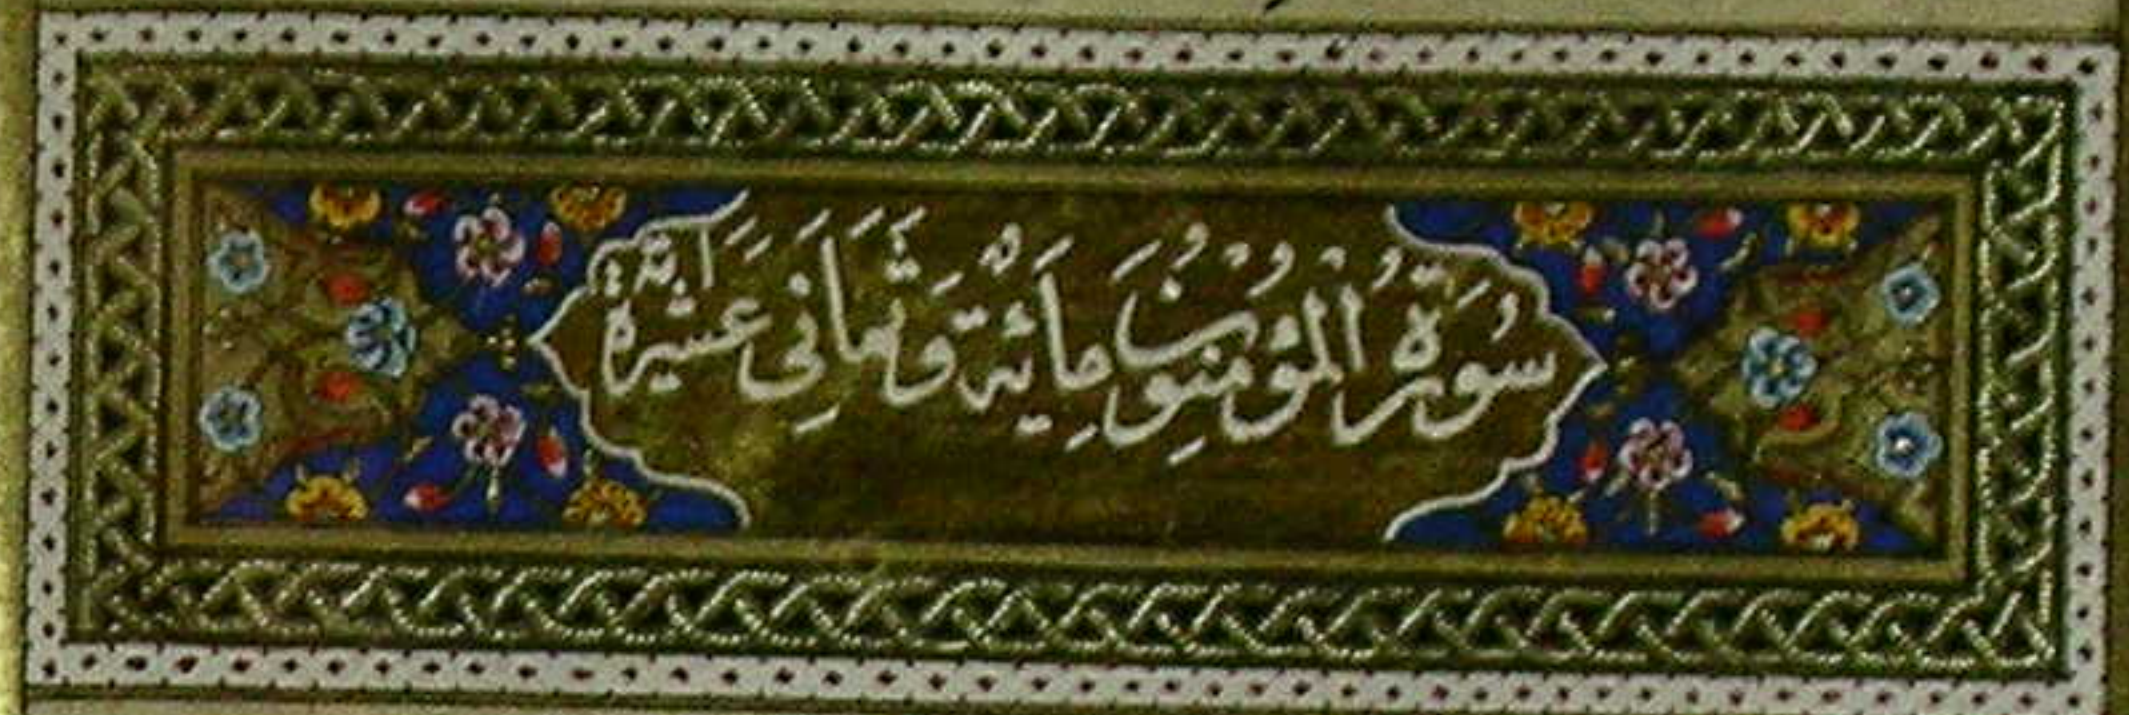 سُورَةُ الْمُؤْمِنُونَ مِائَةٌ وَثَمَانِي عَشَرَةَ اٰيَةً